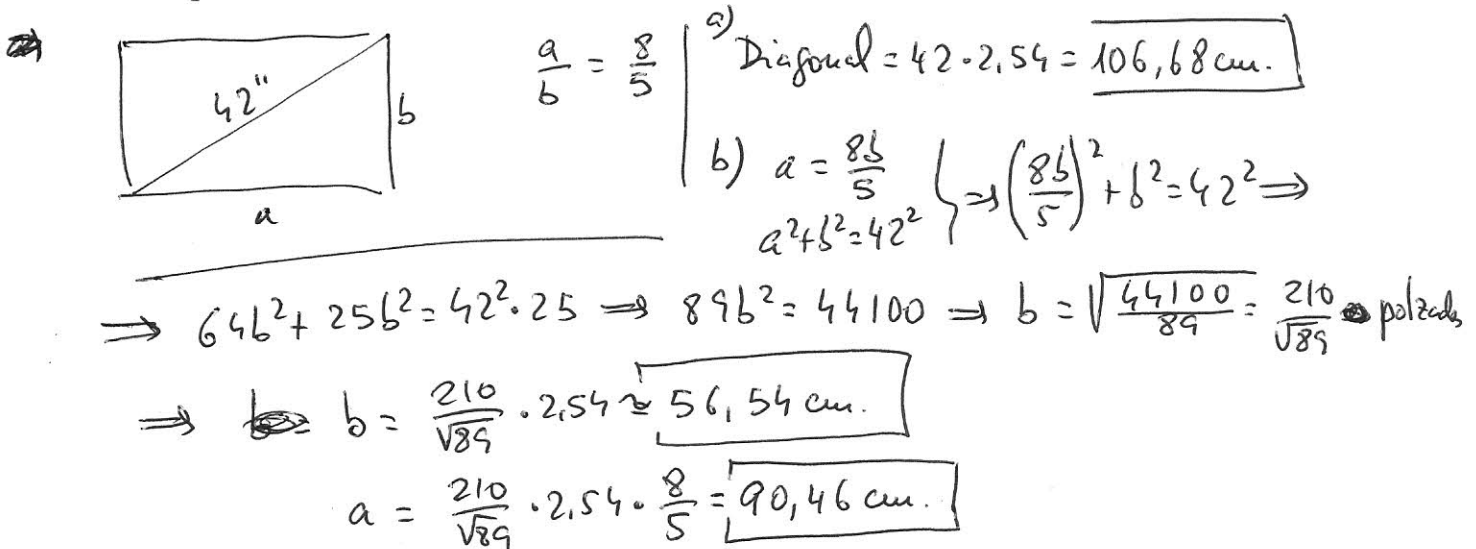 42"
b
a
a/b = 8/5
a) Diagonal = 42·2,54 = 106,68 cm.
b) a = 8b/5
a²+b²=42² } ⇒ (8b/5)² + b² = 42² ⇒
⇒ 64b² + 25b² = 42²·25 ⇒ 89b² = 44100 ⇒ b = √(44100/89) = 210/√89 polzadas
⇒ b = 210/√89 · 2,54 ≃ 56,54 cm.
a = 210/√89 · 2,54 · 8/5 = 90,46 cm.